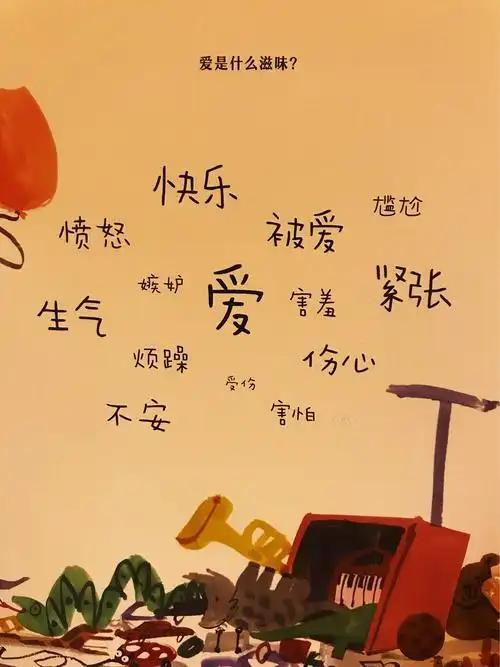 爱是什么滋味？
快乐
尴尬
愤怒
被爱
嫉妒
爱
害羞
紧张
生气
烦躁
伤心
受伤
不安
害怕